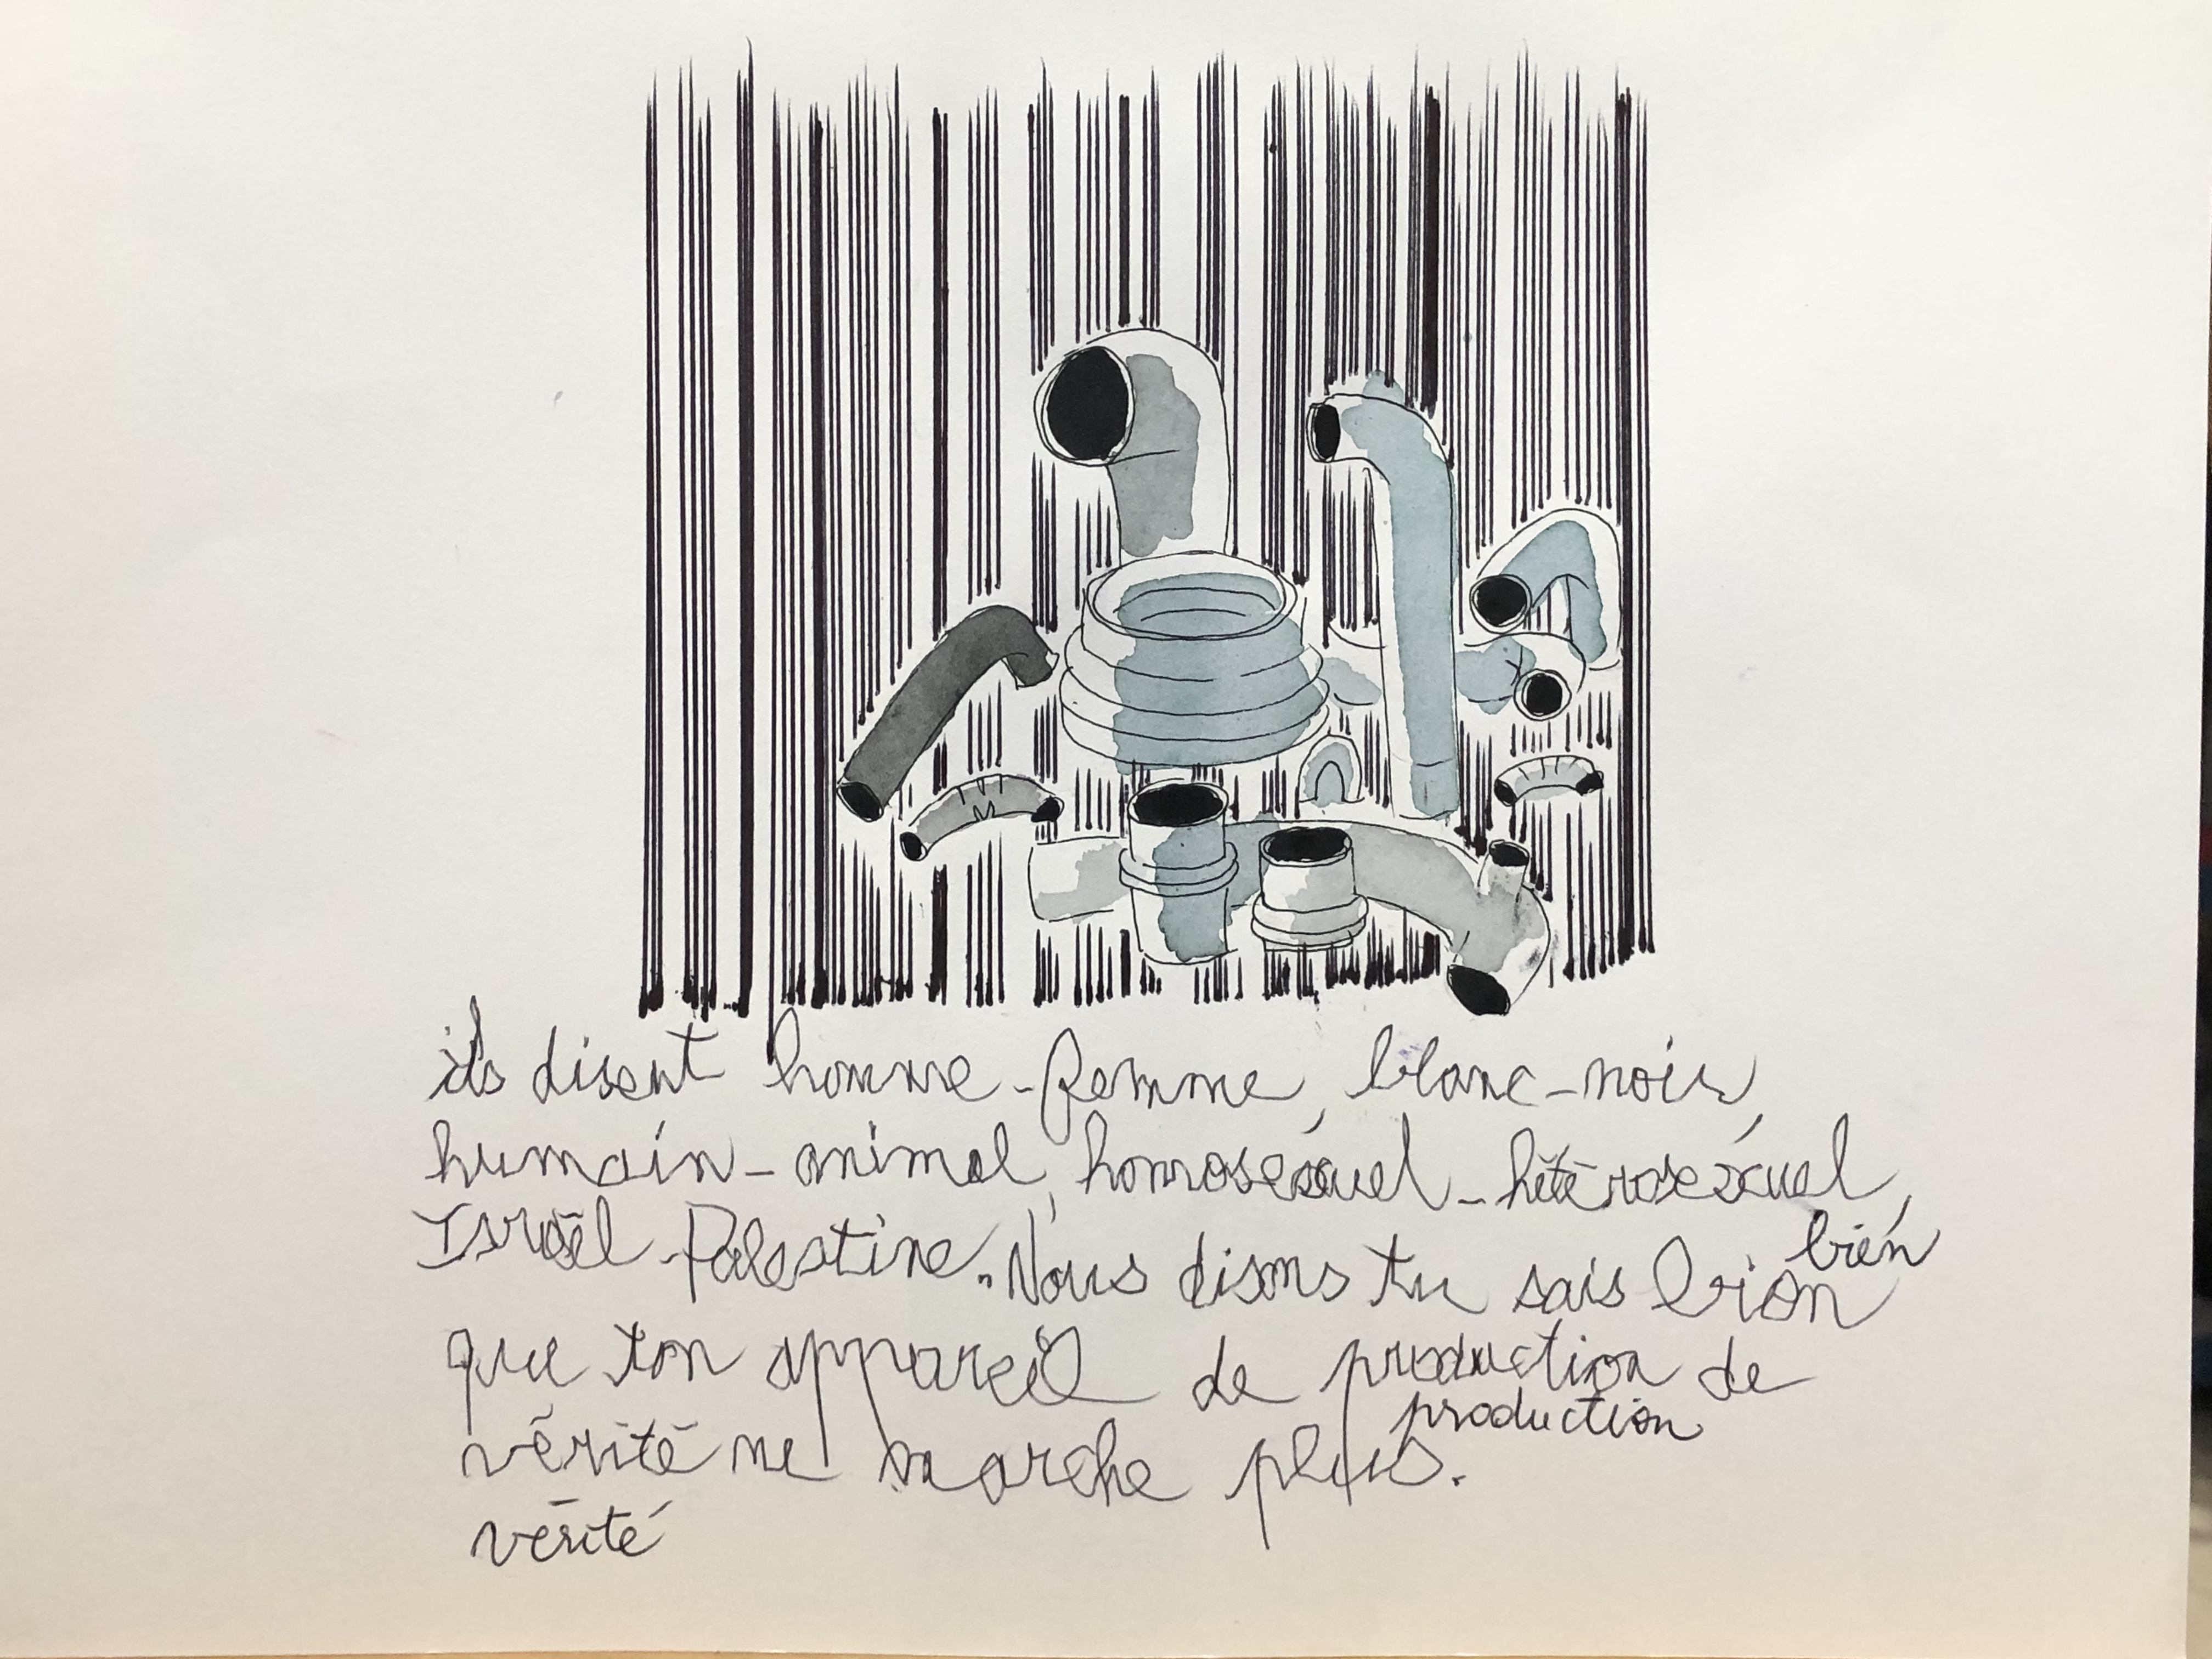 ils disent homme-femme, blanc-noir,
humain-animal, homosexuel-hétérosexuel,
Israël-Palestine. Nous disons tu sais bien
bien
que ton appareil de production de
production
vérité ne marche plus.
vérité